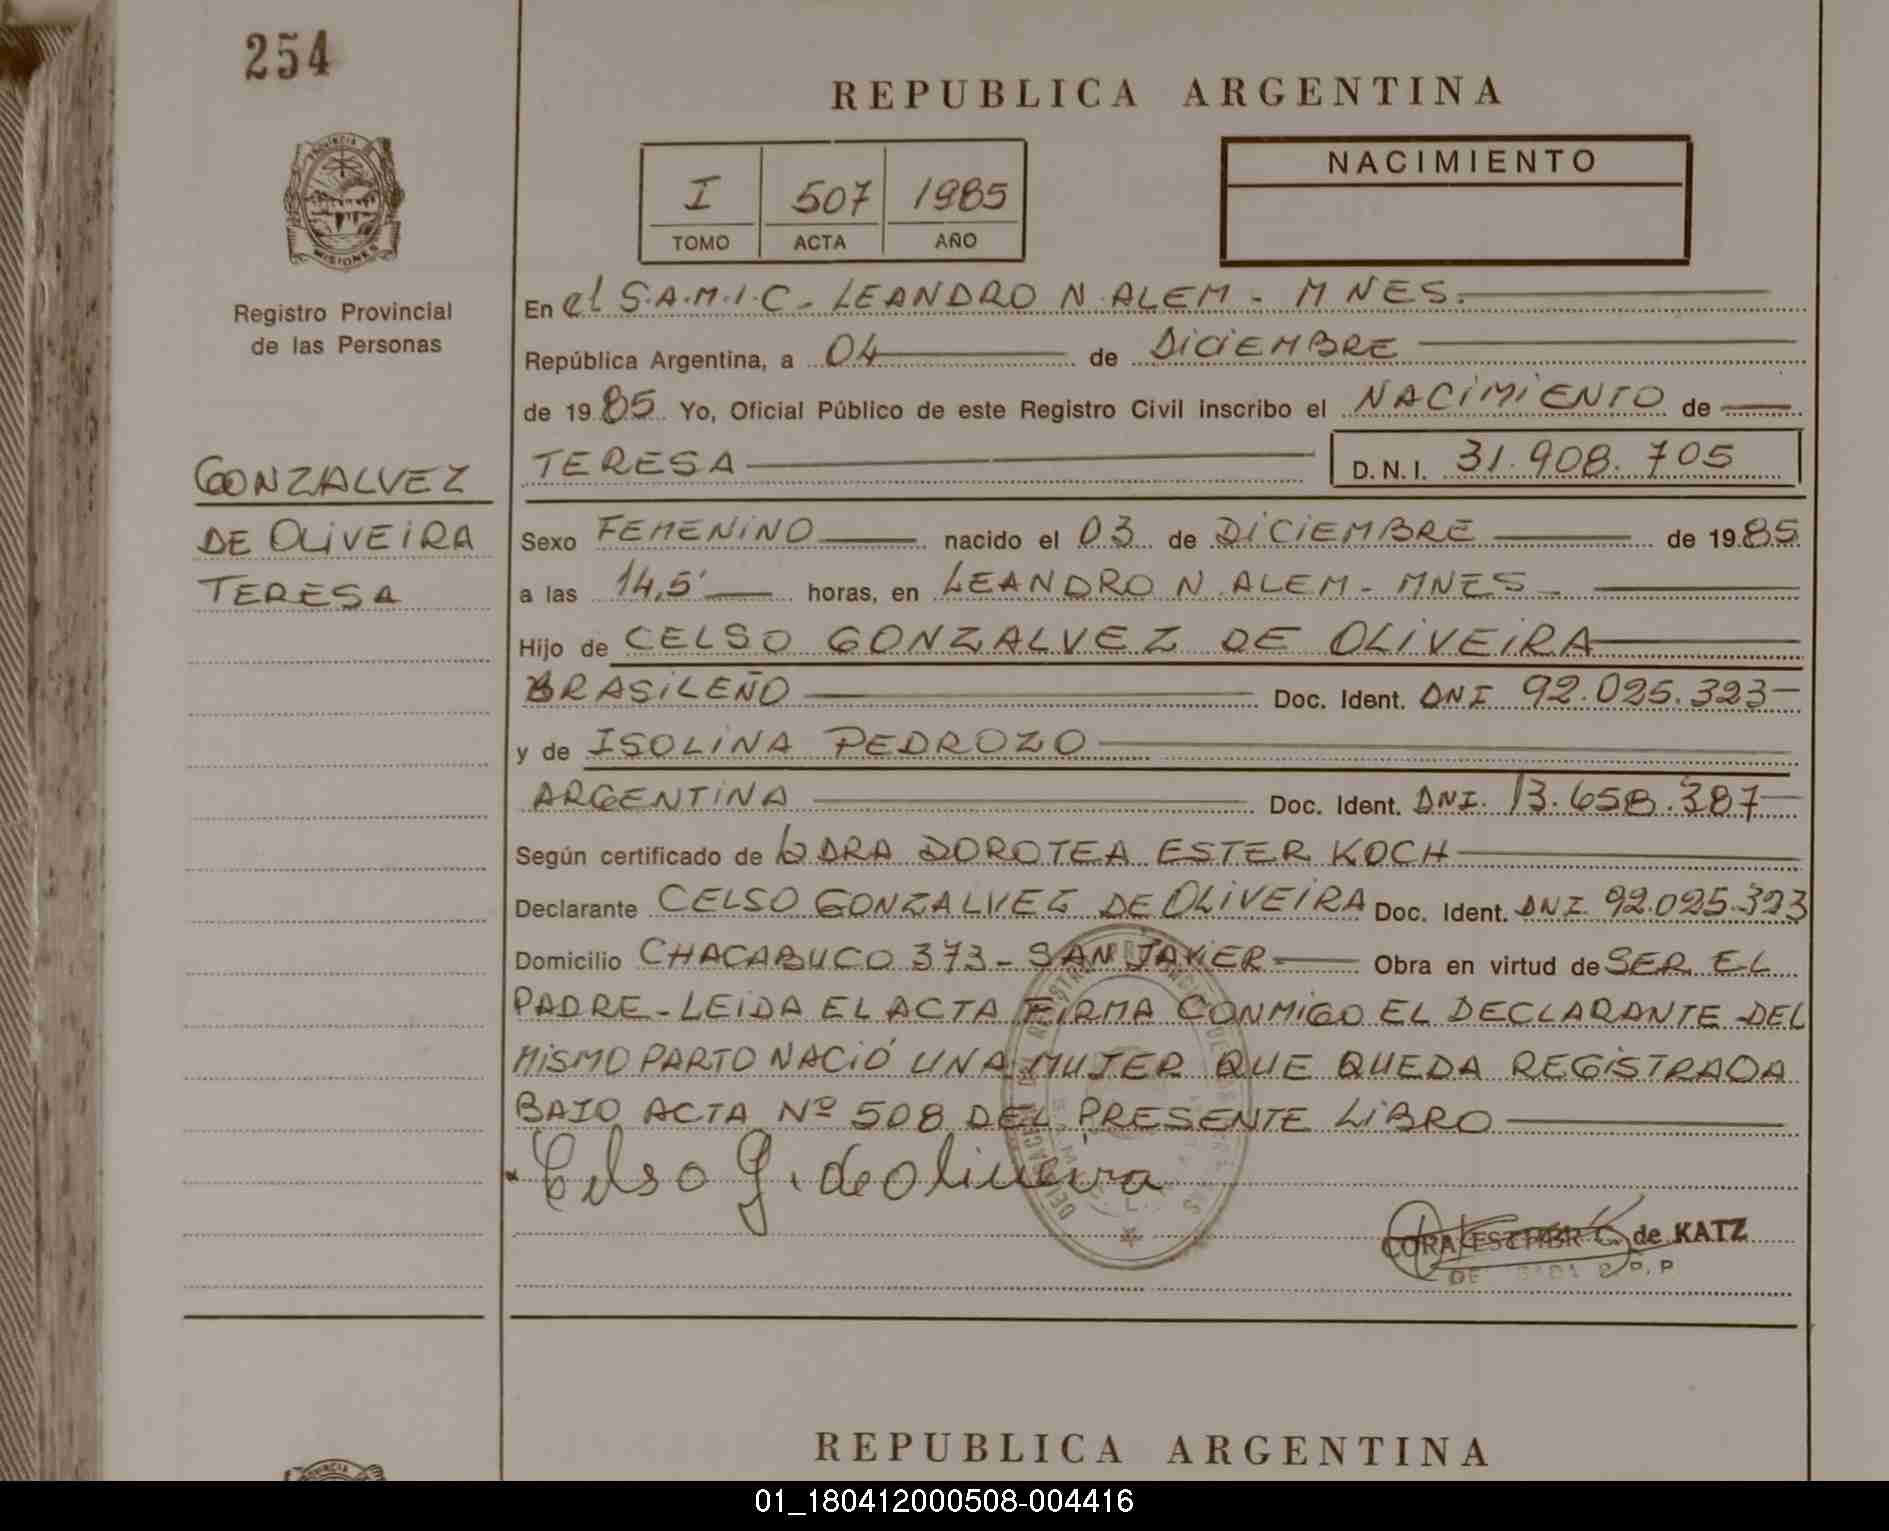 254
REPUBLICA ARGENTINA
PROVINCIA
MISIONES
Registro Provincial
de las Personas
I 507 1985
TOMO ACTA AÑO
NACIMIENTO
En el S.A.M.I.C - LEANDRO N. ALEM - MNES.
República Argentina, a 04 de DICIEMBRE
de 1985 Yo, Oficial Público de este Registro Civil inscribo el NACIMIENTO de
GONZALVEZ
DE OLIVEIRA
TERESA
TERESA D.N.I. 31.908.705
Sexo FEMENINO nacido el 03 de DICIEMBRE de 1985
a las 14,5' horas, en LEANDRO N. ALEM - MNES -
Hijo de CELSO GONZALVEZ DE OLIVEIRA
BRASILEÑO Doc. Ident. DNI 92.025.323
y de ISOLINA PEDROZO
ARGENTINA Doc. Ident. DNI. 13.658.387
Según certificado de la DRA DOROTEA ESTER KOCH
Declarante CELSO GONZALVEZ DE OLIVEIRA Doc. Ident. DNI 92.025.323
Domicilio CHACABUCO 373 - SAN JAVIER Obra en virtud de SER EL
PADRE - LEIDA EL ACTA FIRMA CONMIGO EL DECLARANTE DEL
MISMO PARTO NACIÓ UNA MUJER QUE QUEDA REGISTRADA
BAJO ACTA Nº 508 DEL PRESENTE LIBRO
Celso G. de oliveira
CORA ESTHER C. de KATZ
REPUBLICA ARGENTINA
PROVINCIA
01_180412000508-004416